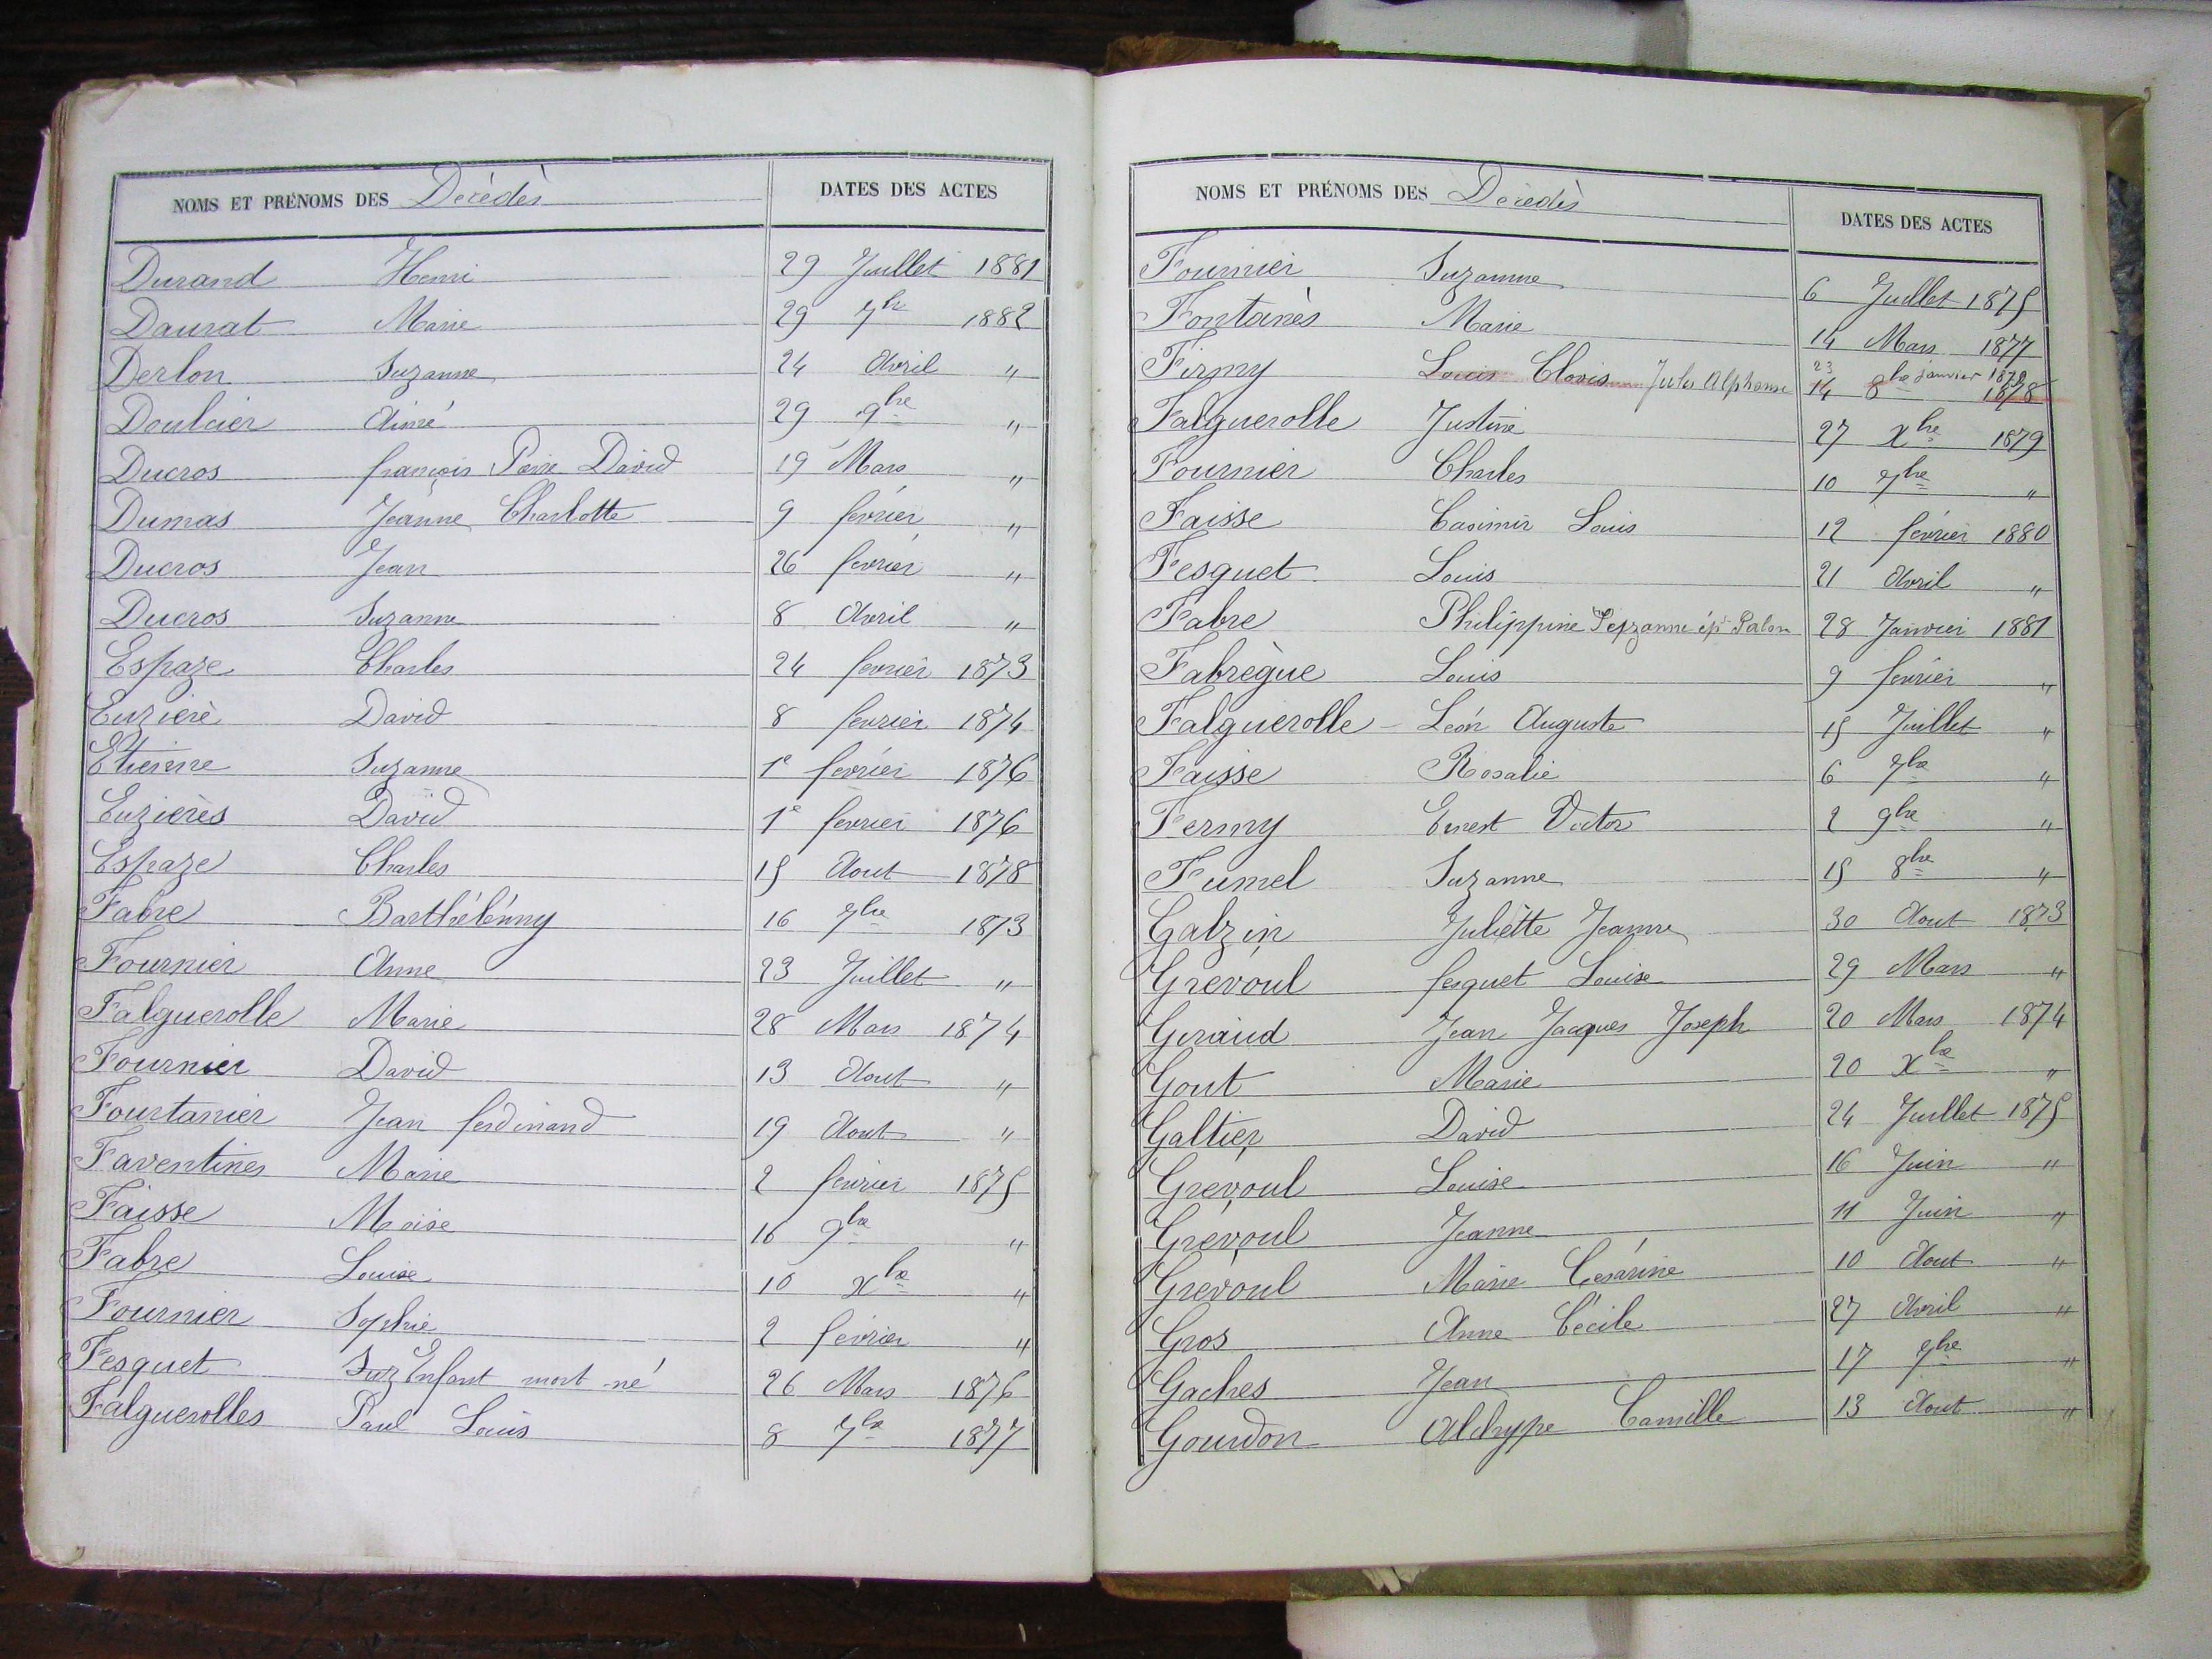 NOMS ET PRÉNOMS DES Décédés DATES DES ACTES
Durand Henri 29 Juillet 1881
Daurat Marie 29 7bre 1882
Derlon Suzanne 24 Avril "
Doulcier Aimé 29 9bre "
Ducros françois Pierre David 19 Mars "
Dumas Jeanne Charlotte 9 février "
Ducros Jean 26 février "
Ducros Suzanne 8 Avril "
Espaze Charles 24 février 1873
Euzière David 8 fevrier 1874
Etienne Suzanne 1e février 1876
Euzières David 1e fevrier 1876
Espaze Charles 15 Aout 1878
Fabre Barthélémy 16 7bre 1873
Fournier Anne 23 Juillet "
Falguerolle Marie 28 Mars 1874
Fournier David 13 Aout "
Fourtanier Jean ferdinand 19 Aout "
Faventines Marie 2 février 1875
Faisse Moise 16 9bre "
Fabre Louise 10 Xbre "
Fournier Sophie 2 février "
Fesquet Suz Enfant mort-né 26 Mars 1876
Falguerolles Paul Louis 8 7bre 1877
NOMS ET PRÉNOMS DES Décédés DATES DES ACTES
Fournier Suzanne 6 Juillet 1875
Fontanès Marie 14 Mars 1877
23 janvier 1878
Firmy Louis Clovis Jules Alphonse 14 8bre 1878
Falguerolle Justine 27 Xbre 1879
Fournier Charles 10 7bre "
Faisse Casimir Louis 12 février 1880
Fesquet Louis 21 Avril "
Fabre Philippine Suzanne ép. Palon 28 Janvier 1881
Fabrègue Louis 9 février "
Falguerolle Léon Auguste 15 Juillet "
Faisse Rosalie 6 7bre "
Fermy Ernest Victor 2 9bre "
Fumel Suzanne 15 8bre "
Galzin Juliette Jeanne 30 Aout 1873
Grevoul fesquet Louise 29 Mars "
Geraud Jean Jacques Joseph 20 Mars 1874
Gout Marie 20 Xbre "
Galtier David 24 Juillet 1875
Grevoul Louise 16 Juin "
Grevoul Jeanne 11 Juin "
Grévoul Marie Césarine 10 Aout "
Gros Anne Cécile 27 Avril "
Gaches Jean 17 7bre "
Gourdon Alchyppe Camille 13 Aout "